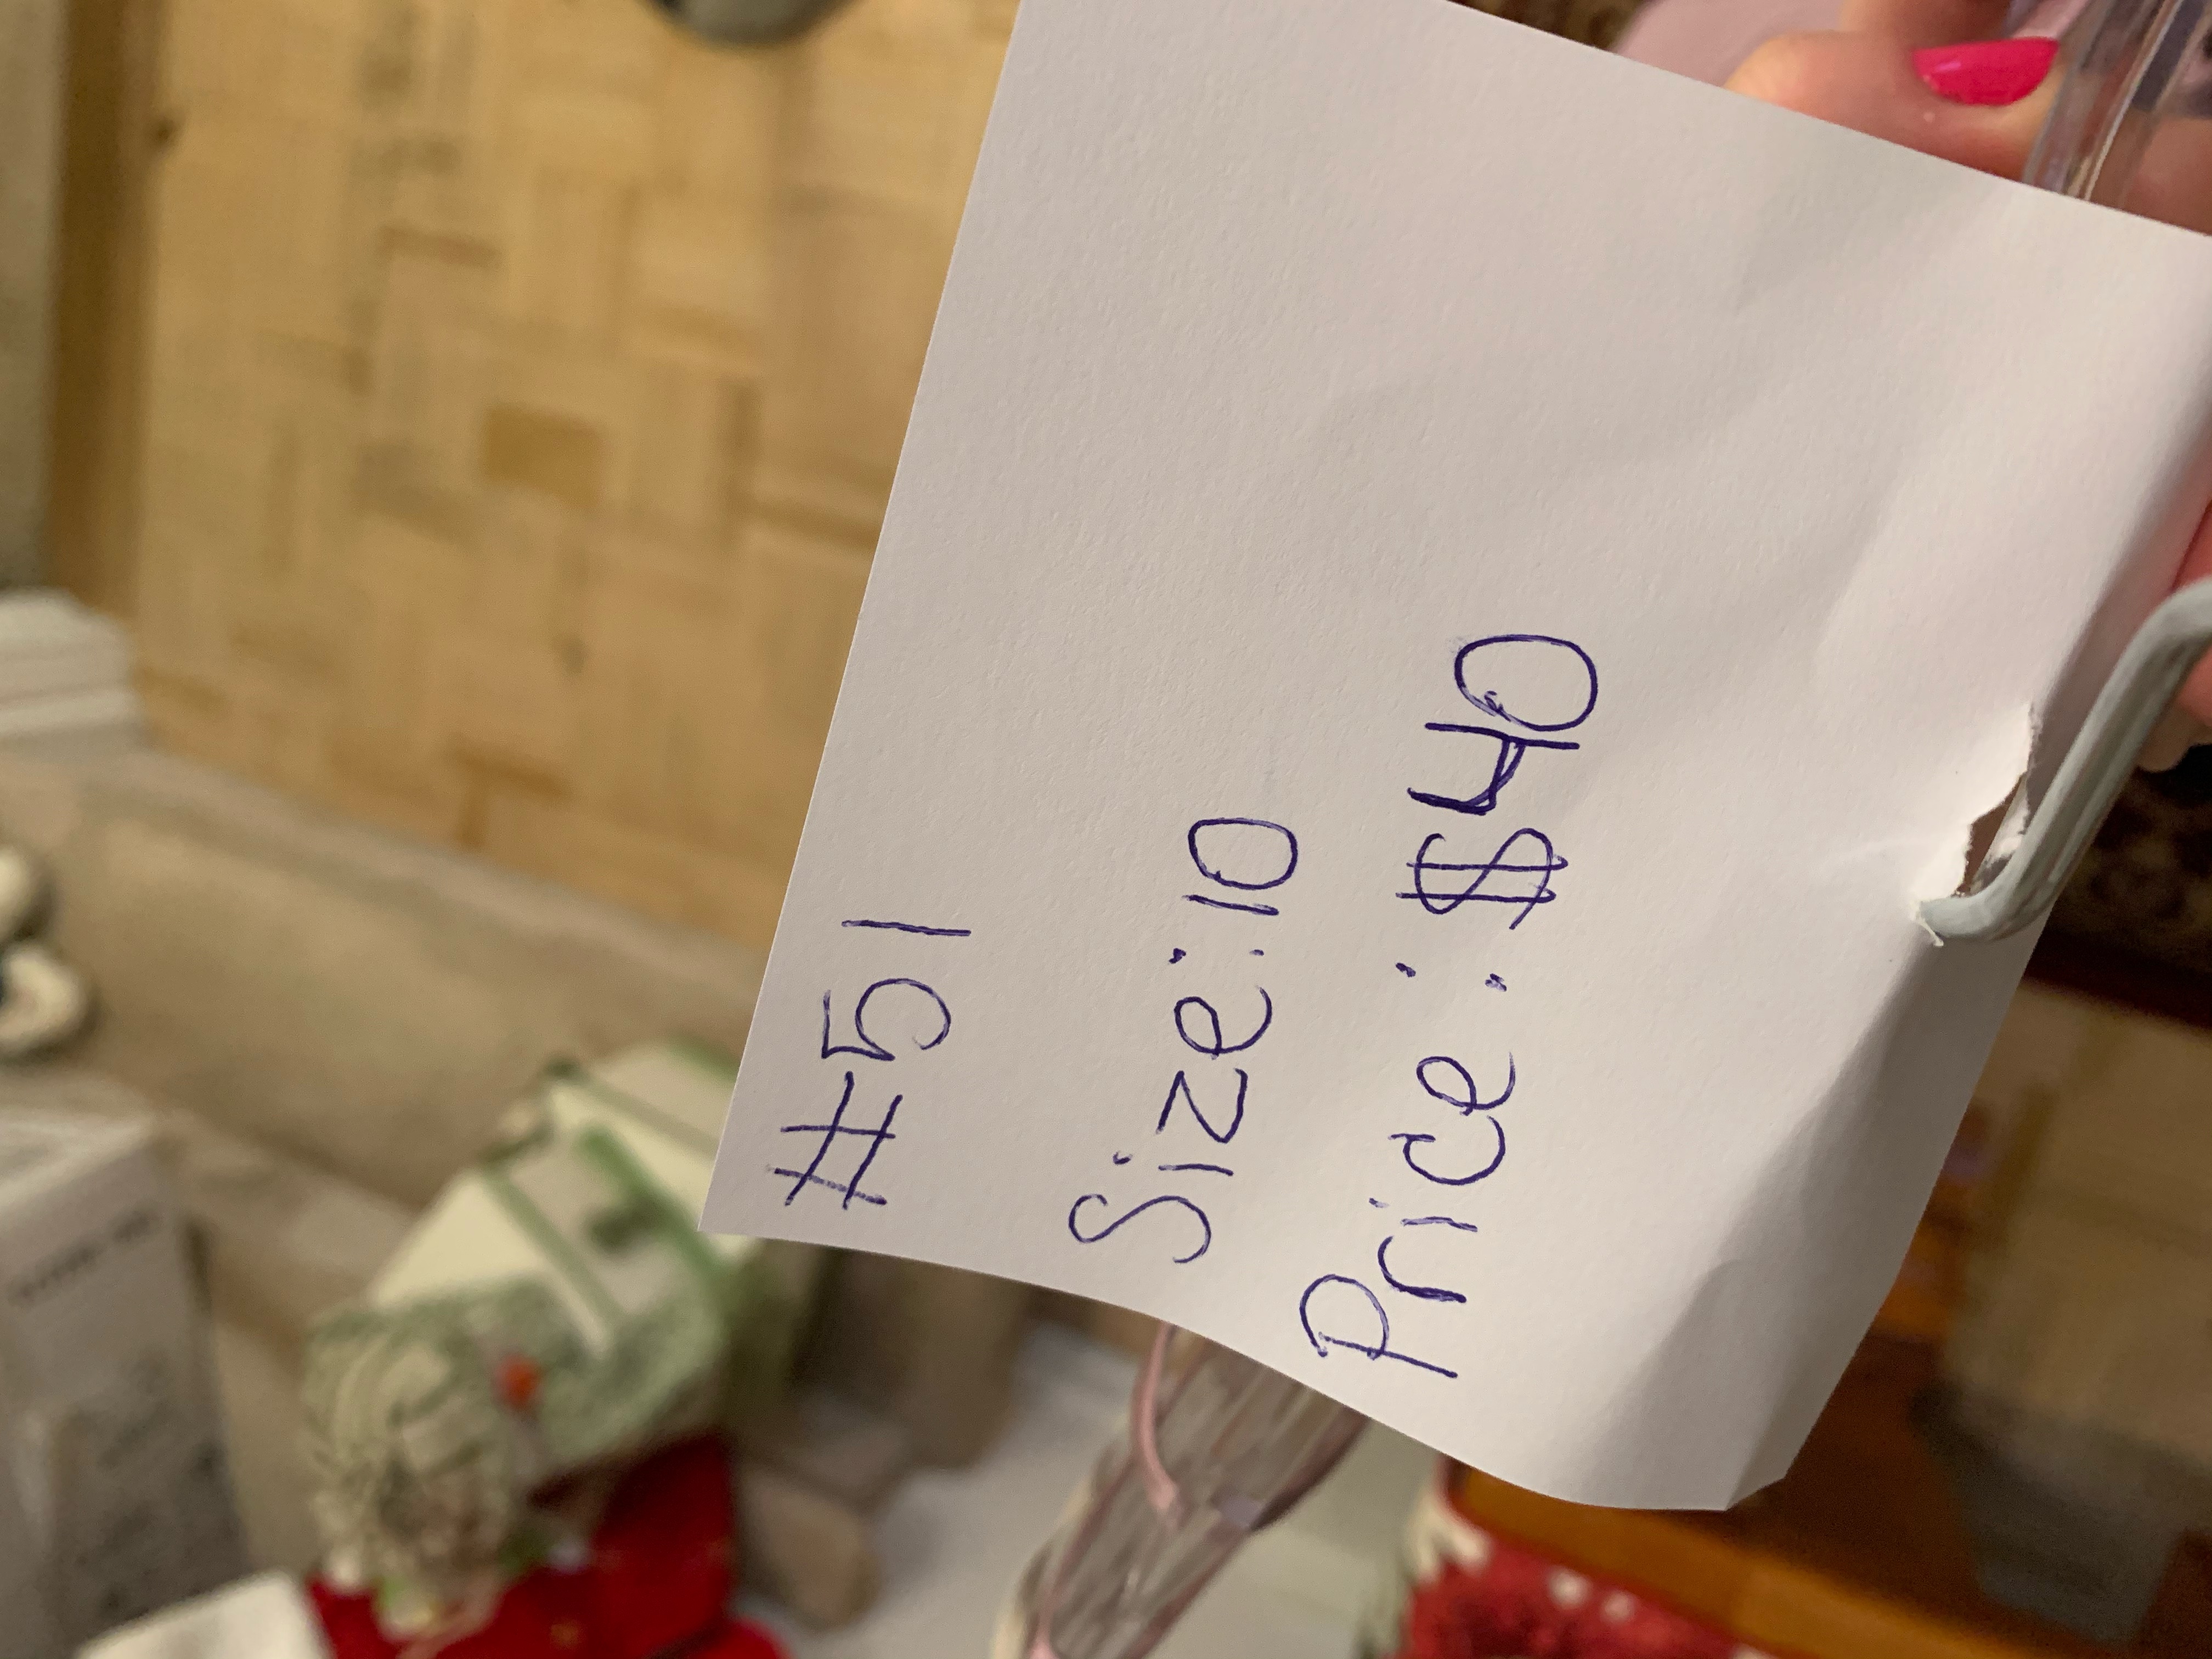 #51
Size:10
Price:$40